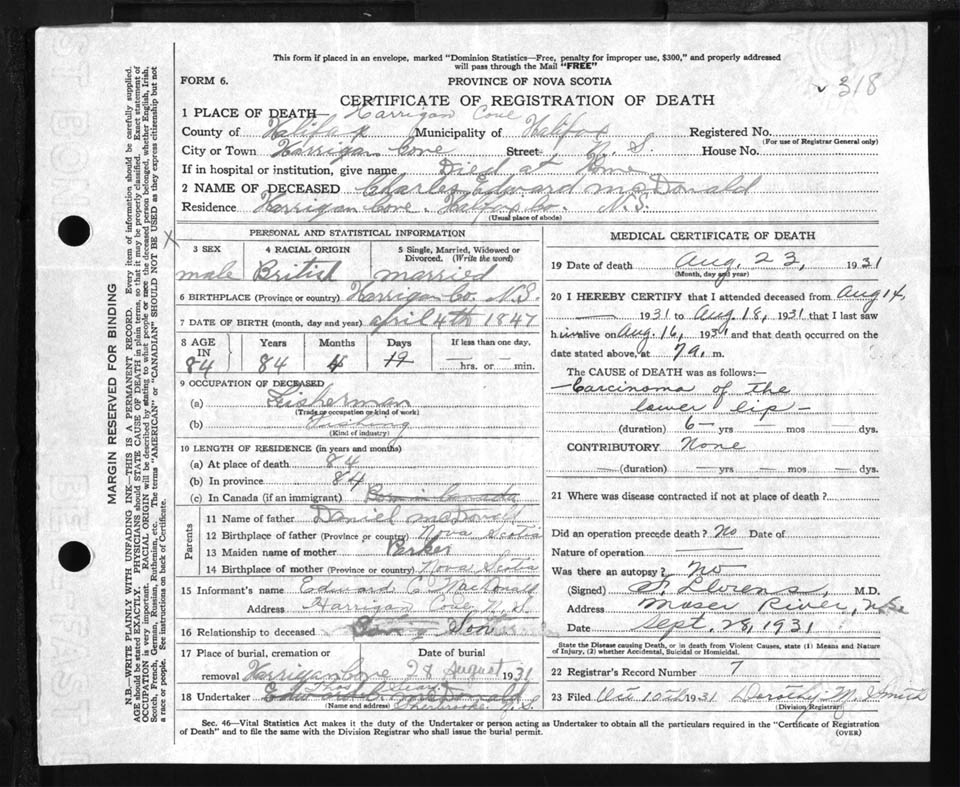 This form if placed in an envelope, marked "Dominion Statistics—Free, penalty for improper use, $300," and properly addressed
will pass through the Mail "FREE"
FORM 6.
PROVINCE OF NOVA SCOTIA
318
CERTIFICATE OF REGISTRATION OF DEATH
1 PLACE OF DEATH— Harrigan Cove
County of Halifax Municipality of Halifax Registered No.
(For use of Registrar General only)
City or Town Harrigan Cove Street N. S. House No.
If in hospital or institution, give name Died at Home
2 NAME OF DECEASED Charles Edward McDonald
Residence Harrigan Cove. Halifax Co. N.S.
(Usual place of abode)
PERSONAL AND STATISTICAL INFORMATION
3 SEX male
4 RACIAL ORIGIN British
5 Single, Married, Widowed or Divorced. (Write the word) married
6 BIRTHPLACE (Province or country) Harrigan Co. N.S.
7 DATE OF BIRTH (month, day and year) april 4th 1847
8 AGE IN 84
Years 84 Months 4 Days 19 If less than one day. hrs. or min.
9 OCCUPATION OF DECEASED
(a) Fisherman
(Trade or occupation or kind of work)
(b) Fishing
(Kind of industry)
10 LENGTH OF RESIDENCE (in years and months)
(a) At place of death 84
(b) In province 84
(c) In Canada (if an immigrant) Born in Canada
Parents
11 Name of father Daniel McDonald
12 Birthplace of father (Province or country) Nova Scotia
13 Maiden name of mother Parker
14 Birthplace of mother (Province or country) Nova Scotia
15 Informant's name Edward C MacDonald
Address Harrigan Cove N. S.
16 Relationship to deceased Son
17 Place of burial, cremation or removal Harrigan Cove
Date of burial 28 August 1931
18 Undertaker
(Name and address) Sherbrooke N. S.
MEDICAL CERTIFICATE OF DEATH
19 Date of death Aug. 23, 1931
(Month, day and year)
20 I HEREBY CERTIFY that I attended deceased from Aug 14,
1931 to Aug 18, 1931 that I last saw
him alive on Aug. 16, 1931 and that death occurred on the
date stated above, at 7 a. m.
The CAUSE OF DEATH was as follows:—
Carcinoma of the
lower lip—
(duration) 6 — yrs — mos — dys.
CONTRIBUTORY None
(duration) — yrs — mos — dys.
21 Where was disease contracted if not at place of death?
Did an operation precede death? No Date of
Nature of operation
Was there an autopsy? No
(Signed) Llorens, M.D.
Address Moser River, N.S.
Date Sept. 28, 1931
State the Disease causing Death, or in death from Violent Causes, state (1) Means and Nature
of Injury, (2) whether Accidental, Suicidal or Homicidal.
22 Registrar's Record Number 7
23 Filed Oct 10th 1931 Dorothy M. Smith
(Division Registrar)
Sec. 46—Vital Statistics Act makes it the duty of the Undertaker or person acting as Undertaker to obtain all the particulars required in the "Certificate of Registration
of Death" and to file the same with the Division Registrar who shall issue the burial permit.
(OVER)
MARGIN RESERVED FOR BINDING
N.B.—WRITE PLAINLY WITH UNFADING INK—THIS IS A PERMANENT RECORD. Every item of information should be carefully supplied.
AGE should be stated EXACTLY. PHYSICIANS should STATE CAUSE OF DEATH in plain terms, so that it may be properly classified. Exact statement of
OCCUPATION is very important. RACIAL ORIGIN will be described by stating to what people or race the deceased person belonged, whether English, Irish,
Scotch, French, German, Russian, Ruthenian, etc. The terms "AMERICAN" or "CANADIAN" SHOULD NOT BE USED as they express citizenship but not
a race or people. See instructions on back of Certificate.